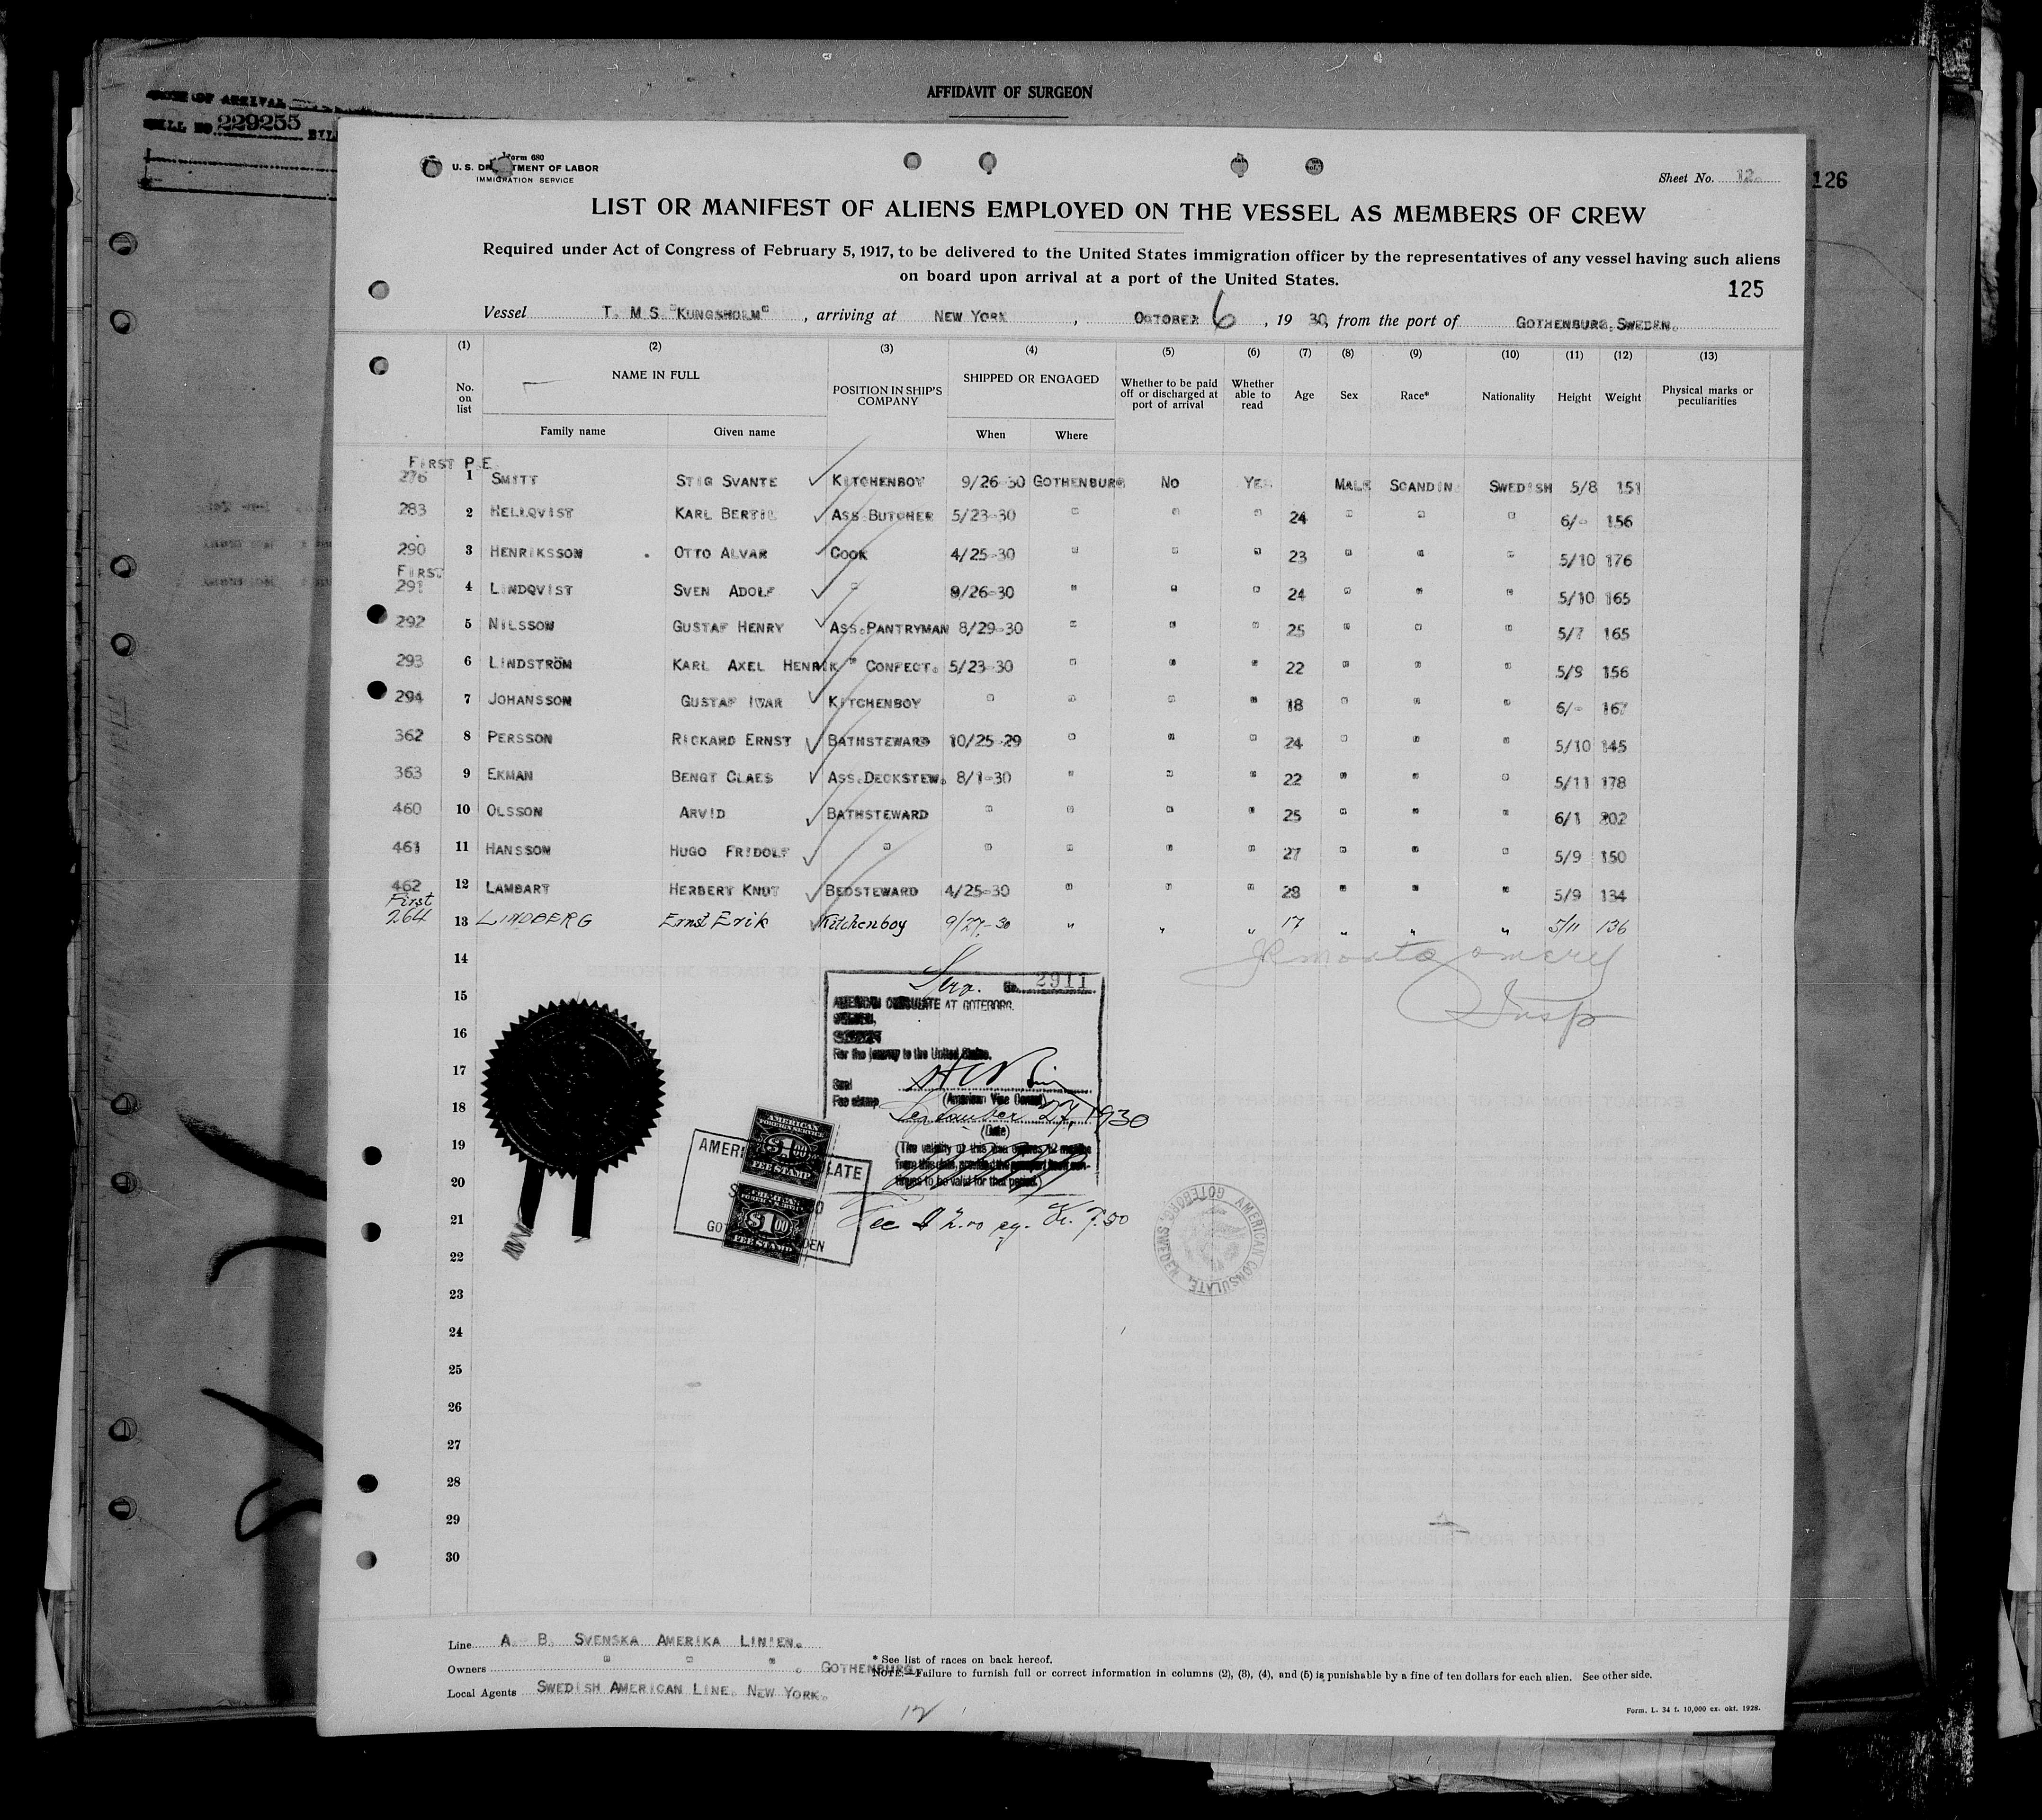 AFFIDAVIT OF SURGEON
OF ARRIVAL
NO. 229255
Form 680
U. S. DEPARTMENT OF LABOR
IMMIGRATION SERVICE
Sheet No. 12
126
LIST OR MANIFEST OF ALIENS EMPLOYED ON THE VESSEL AS MEMBERS OF CREW
Required under Act of Congress of February 5, 1917, to be delivered to the United States immigration officer by the representatives of any vessel having such aliens
on board upon arrival at a port of the United States.
125
Vessel T. M S "KUNGSHOLM", arriving at NEW YORK, OCTOBER 6, 19 30, from the port of GOTHENBURG, SWEDEN.
(1) (2) (3) (4) (5) (6) (7) (8) (9) (10) (11) (12) (13)
No. on list NAME IN FULL POSITION IN SHIP'S COMPANY SHIPPED OR ENGAGED Whether to be paid off or discharged at port of arrival Whether able to read Age Sex Race* Nationality Height Weight Physical marks or peculiarities
Family name Given name When Where
FIRST P.E.
276 1 SMITT STIG SVANTE KITCHENBOY 9/26-30 GOTHENBURG NO YES MALE SCANDIN. SWEDISH 5/8 151
283 2 HELLQVIST KARL BERTIL ASS.BUTCHER 5/23-30 " " " 24 " " " 6/- 156
290 3 HENRIKSSON OTTO ALVAR COOK 4/25-30 " " " 23 " " " 5/10 176
FIRST
291 4 LINDQVIST SVEN ADOLF " 9/26-30 " " " 24 " " " 5/10 165
292 5 NILSSON GUSTAF HENRY ASS.PANTRYMAN 8/29-30 " " " 25 " " " 5/7 165
293 6 LINDSTRÖM KARL AXEL HENRIK " CONFECT. 5/23-30 " " " 22 " " " 5/9 156
294 7 JOHANSSON GUSTAF IWAR KITCHENBOY " " " " 18 " " " 6/- 167
362 8 PERSSON RICKARD ERNST BATHSTEWARD 10/25-29 " " " 24 " " " 5/10 145
363 9 EKMAN BENGT CLAES ASS.DECKSTEW. 8/1-30 " " " 22 " " " 5/11 178
460 10 OLSSON ARVID BATHSTEWARD " " " " 25 " " " 6/1 202
461 11 HANSSON HUGO FRIDOLF " " " " " 27 " " " 5/9 150
462 12 LAMBART HERBERT KNUT BEDSTEWARD 4/25-30 " " " 28 " " " 5/9 134
First
264 13 LINDBERG Ernst Erik Kitchenboy 9/27-30 " " " 17 " " " 5/11 136
14
Montgomery
Insp
15
No. 2911
AMERICAN CONSULATE AT GOTEBORG,
SWEDEN,
16
For the journey to the United States.
17
Seal
Fee stamp (American Vice Consul)
18
September 27, 1930
(Date)
19
(The validity of this visa expires 12 months
from this date, provided the passport
continues to be valid for that period.)
20
AMERICAN FOREIGN SERVICE
$1.00
FEE STAMP
AMERICAN FOREIGN SERVICE
$1.00
FEE STAMP
21
Fee $ 2.00 eq. Kr. 7.50
AMERICAN CONSULATE, GOTEBORG, SWEDEN
22
23
24
25
26
27
28
29
30
Line A. B. SVENSKA AMERIKA LINIEN.
Owners " " " . GOTHENBURG.
Local Agents SWEDISH AMERICAN LINE. NEW YORK.
* See list of races on back hereof.
NOTE.—Failure to furnish full or correct information in columns (2), (3), (4), and (5) is punishable by a fine of ten dollars for each alien. See other side.
12
Form. L. 34 f. 10,000 ex. okt. 1928.